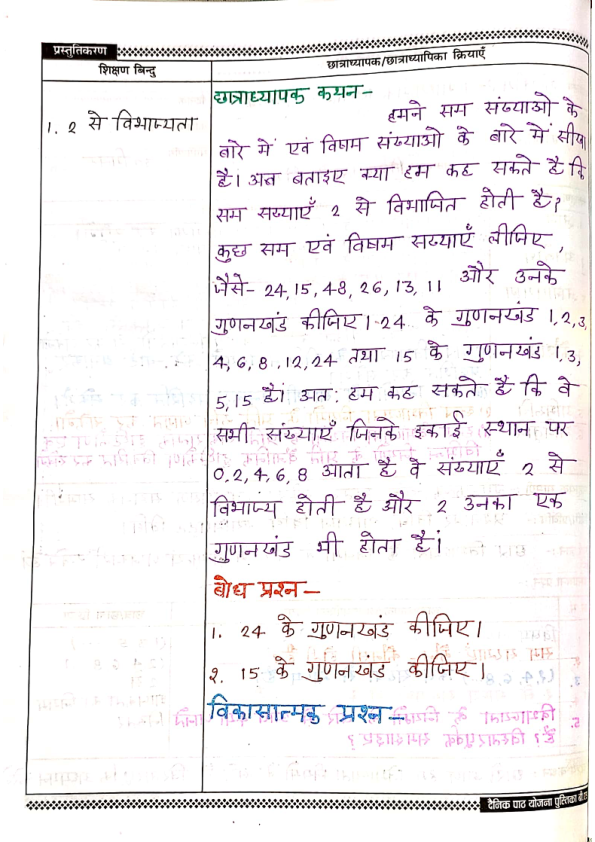 प्रस्तुतिकरण
शिक्षण बिन्दु
छात्राध्यापक/छात्राध्यापिका क्रियाएँ
1. 2 से विभाज्यता
छात्राध्यापक कथन-
हमने सम संख्याओ के
बारे में एवं विषम संख्याओ के बारे में सीखा
है। अब बताइए क्या हम कह सकते है कि
सम सख्याएँ 2 से विभाजित होती है?
कुछ सम एवं विषम सख्याएँ लीजिए,
जैसे- 24, 15, 48, 26, 13, 11 और उनके
गुणनखंड कीजिए। 24 के गुणनखंड 1, 2, 3,
4, 6, 8, 12, 24 तथा 15 के गुणनखंड 1, 3,
5, 15 है। अत: हम कह सकते है कि वे
सभी संख्याएँ जिनके इकाई स्थान पर
0, 2, 4, 6, 8 आता है वे सख्याएँ 2 से
विभाज्य होती है और 2 उनका एक
गुणनखंड भी होता है।
बोध प्रश्न-
1. 24 के गुणनखंड कीजिए।
2. 15 के गुणनखंड कीजिए।
विकासात्मक प्रश्न-
दैनिक पाठ योजना पुस्तिका